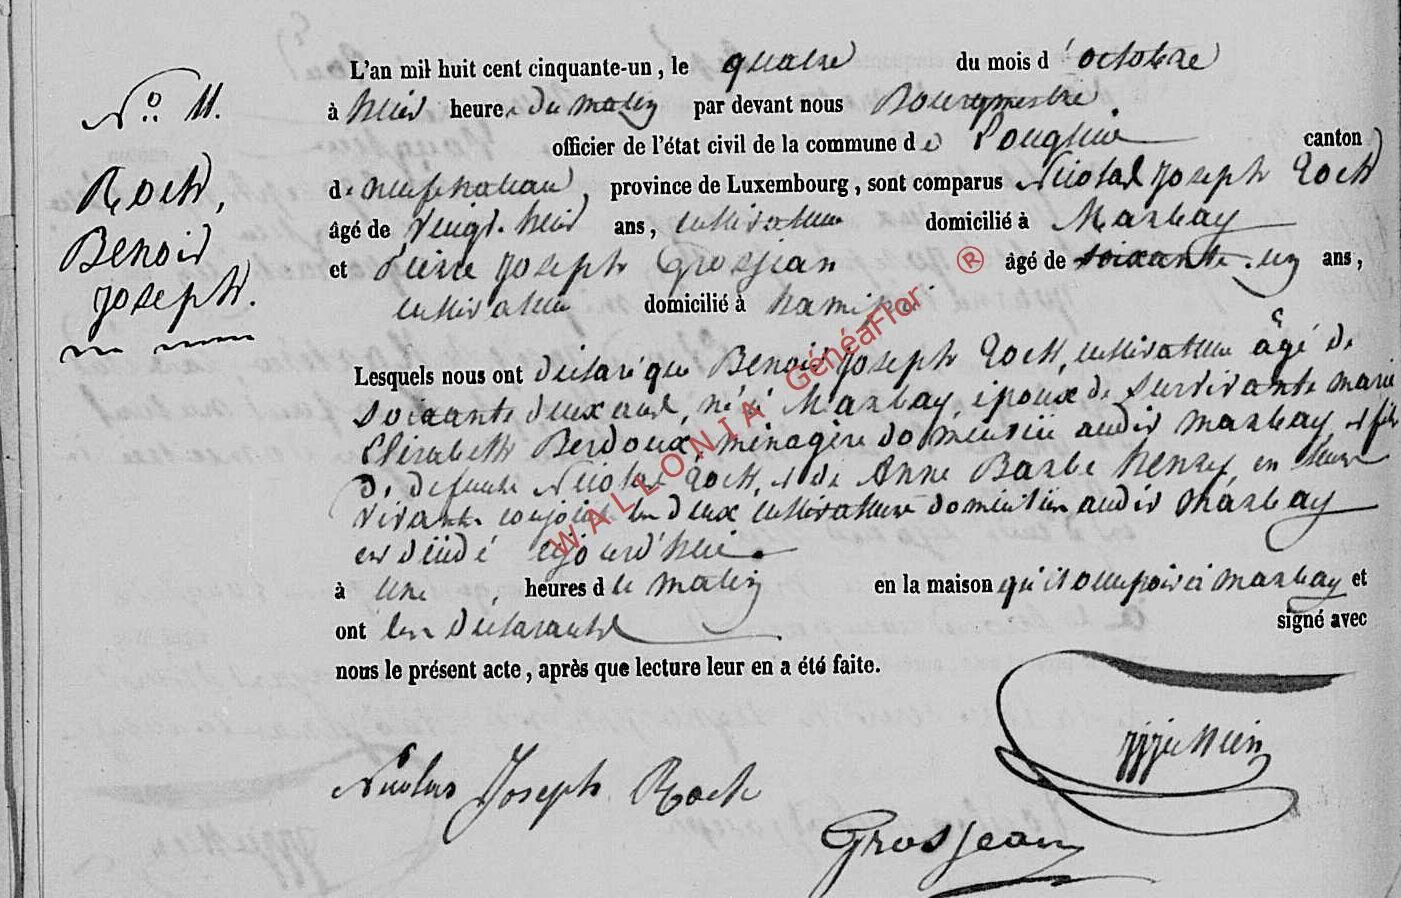 L'an mil huit cent cinquante-un, le quatre du mois d'octobre
N° 11.
à huit heures du matin par devant nous Bourgmestre
officier de l'état civil de la commune de canton
Roch,
de neufchateau, province de Luxembourg, sont comparus Nicolas Joseph Rock
âgé de vingt-huit ans, cultivateur domicilié à Marbay
Benoit
et Pierre Joseph Grosjean âgé de soixante-un ans,
Joseph.
cultivateur domicilié à hamipré
Lesquels nous ont déclaré que Benoit Joseph Rock, cultivateur âgé de
soixante deux ans, né à Marbay, époux de survivante marie
Elisabeth Berdoux, ménagère domiciliée audit marbay, et fils
de defunts Nicolas Rock, et de Anne Barbe henry, en leur
vivant conjoints les deux cultivateurs domiciliés audit Marbay
est décédé aujourd'hui
à une heures du matin en la maison qu'il occupoit à marbay et
ont les déclarants signé avec
nous le présent acte, après que lecture leur en a été faite.
Nicolas Joseph Rock
Grosjean
WALLONIA GénéaFlor ®